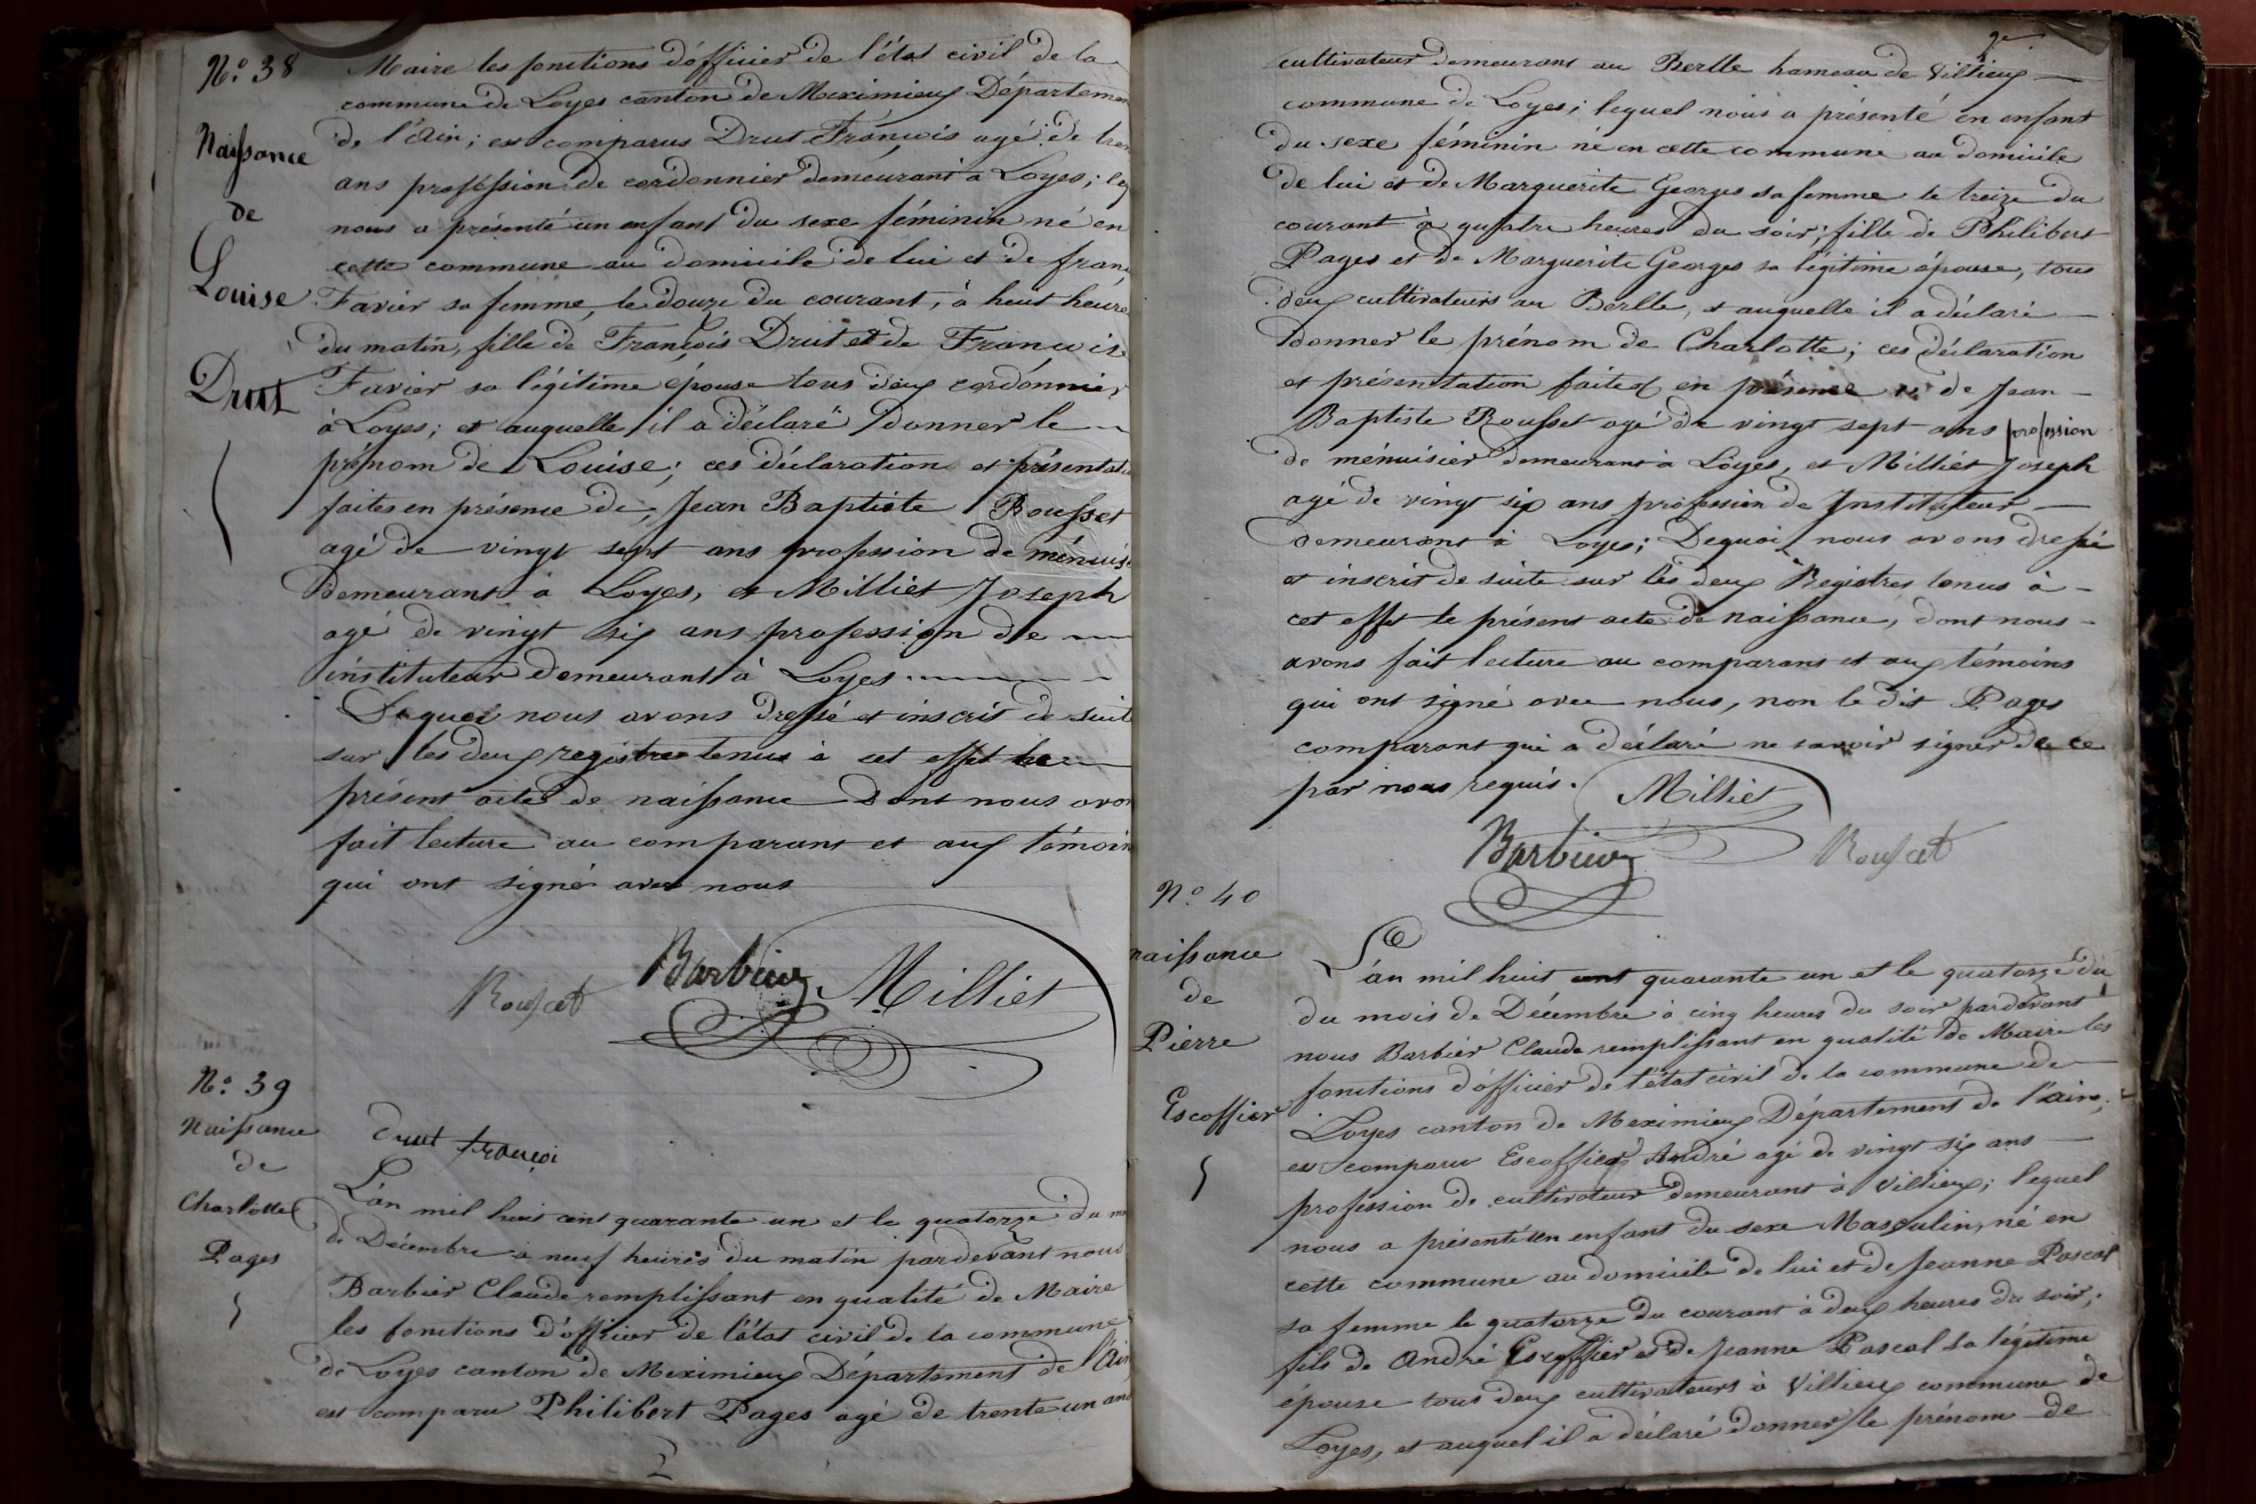 N.o 38
Naissance
de
Louise
Drut
Maire les fonctions d'officier de l'état civil de la
commune de Loyes canton de Meximieux Départemen
de l'Ain; est comparus Drut François agé de tren
ans proféssion de cordonnier demeurant a Loyes; leq
nous a présenté un enfant du sexe féminin né en
cette commune au domicile de lui et de franç
Favier sa femme, le douze du courant, à huit heure
du matin, fille de François Drut et de Francoise
Favier sa légitime épouse tous deux cordonnier
à Loyes; et auquelle il a déclaré donner le
prénom de Louise; ces déclaration et présentati
faites en présence de, Jean Baptiste Rousset
agé de vingt sept ans profession de ménuisi
demeurant à Loyes, et Milliet Joseph
agé de vingt six ans profession de
instituteur demeurant à Loyes
Dequoi nous avons dressé et inscrit de suite
sur les deux registres tenus à cet effet le
présent acte de naissance Dont nous avon
fait lecture au comparant et aux témoin
qui ont signé avec nous
Rouscet Barbier Milliet
N.o 39
Naissance
de
Charlotte
Pages
drut françoi
L'an mil huit cent quarante un et le quatorze du m
de Décembre à neuf heures du matin pardevant nous
Barbier Claude remplissant en qualité de Maire
les fonctions d'officier de l'état civil de la commune
de Loyes canton de Meximieux Département de l'Ain
est comparu Philibert Pages agé de trente un ans
cultivateur demeurant au Berlle hameau de Villieux
commune de Loyes; lequel nous a présenté en enfant
du sexe féminin né en cette commune au domicile
de lui et de Marguerite Georges sa femme le treize du
courant à quatre heures du soir; fille de Philibert
Pages et de Marguerite Georges sa légitime épouse, tous
deux cultivateurs au Berlle, et auquelle il a déclaré
donner le prénom de Charlotte; ces déclaration
et présentation faites en présence de Jean
Baptiste Rousset agé de vingt sept ans profession
de ménuisier demeurant à Loyes, et Milliet Joseph
agé de vingt six ans profession de Instituteur
demeurant à Loyes; Dequoi nous avons dressé
et inscrit de suite sur les deux Registres tenus à
cet effet le présent acte de naissance, dont nous
avons fait lecture au comparant et aux témoins
qui ont signé avec nous, non le dit Pages
comparant qui a déclaré ne savoir signer de ce
par nous requis.
Milliet
Barbier Rouscet
N.o 40
naissance
de
Pierre
Escoffier
L'an mil huit cent quarante un et le quatorze du
du mois de Décembre à cinq heures du soir pardevant
nous Barbier Claude remplissant en qualité de Maire les
fonctions d'officier de l'état civil de la commune de
Loyes canton de Meximieux Département de l'ain;
est comparu Escoffier André agé de vingt six ans
profession de cultivateur demeurant à Villieux; lequel
nous a présenté un enfant du sexe Masculin, né en
cette commune au domicile de lui et de Jeanne Pascal
sa femme le quatorze du courant à deux heures du soir;
fils de André Escoffier et de Jeanne Pascal sa légitime
épouse tous deux cultivateurs à Villieux commune de
Loyes, et auquel il a déclaré donner le prénom de